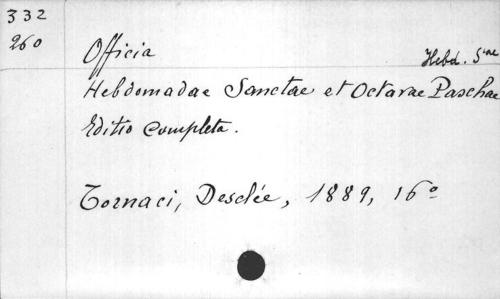 332
260
Officia Hebd. Snae
Hebdomadae Sanctae et Octavae Paschae
Editio completa.
Tornaci, Desclée, 1889, 16º